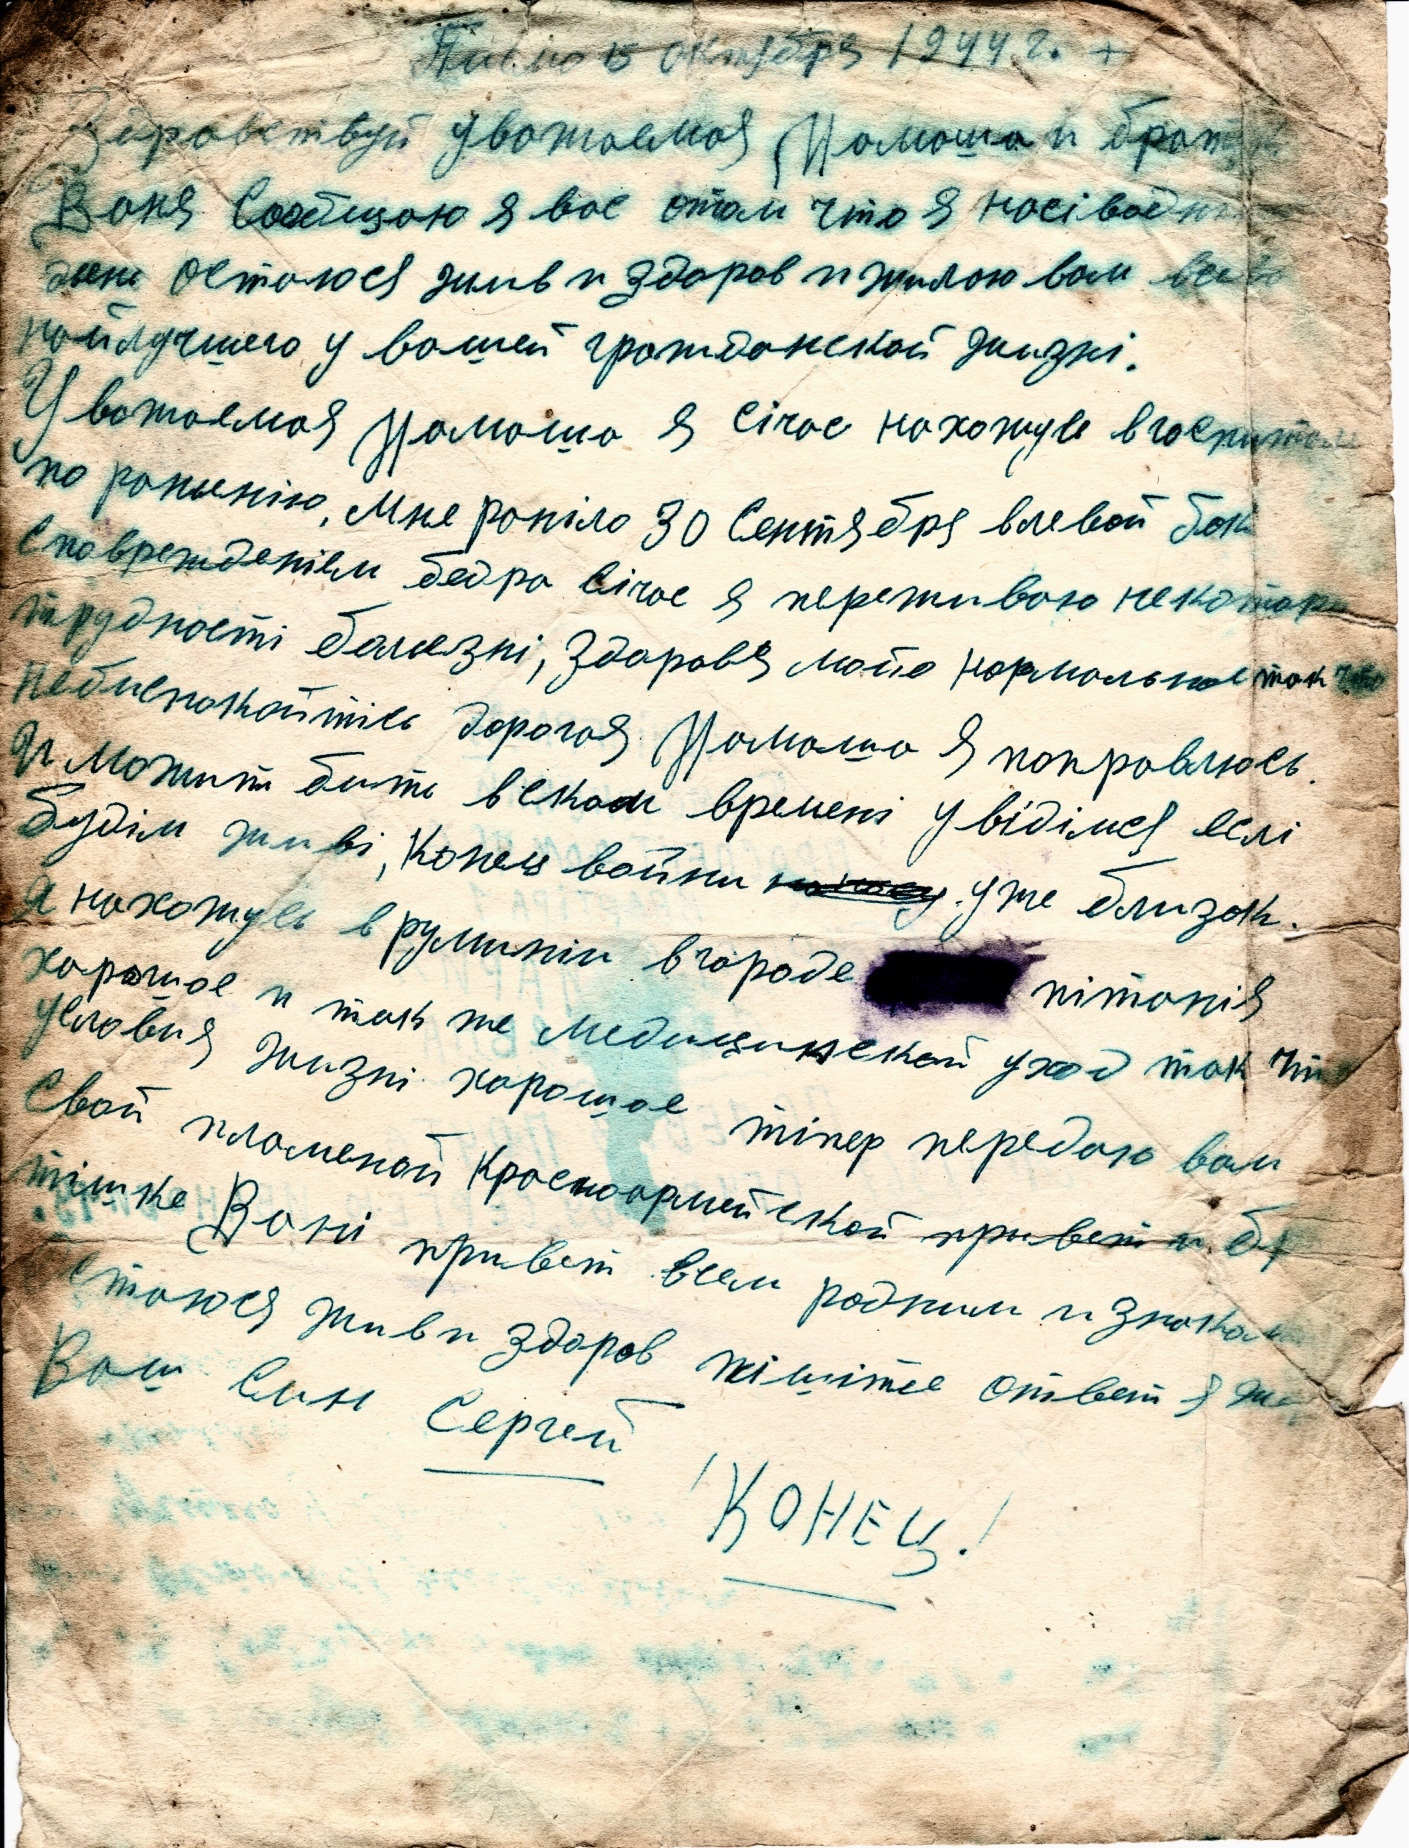 Писмо 15 октября 1944 г. +
Здравствуй уважаемая Мамаша и брат
Ваня Сообщаю я вас отом что я насіводня
день осталюся жив и здоров и жилаю вам всево
найлучшего у вашей гражданской жизні.
Уважаемая Мамаша я січас нахожусь вгоспитале
по раненію, мне раніло 30 Сентября влевой бок
сповреждєніем бедра січас я переживаю некоторы
трудності болезні, здоровя мойо нормальное так что
небиспокойтісь дорогая Мамаша я поправлюсь.
И можит бить вскоам времені увідімся еслі
будім живі, конец войни уже близок.
Я нахожусь вруминіи вгороде пітанія
харошое и так же медицинской уход так что
условия жизні харошое тіпер передаю вам
свой пламеной Красноармейской привет и бр
тішке Вані привет всем родним и знакоми
стаюся жив и здоров пішітее ответ я жд
Ваш син Сергей
! КОНЕЦ. !